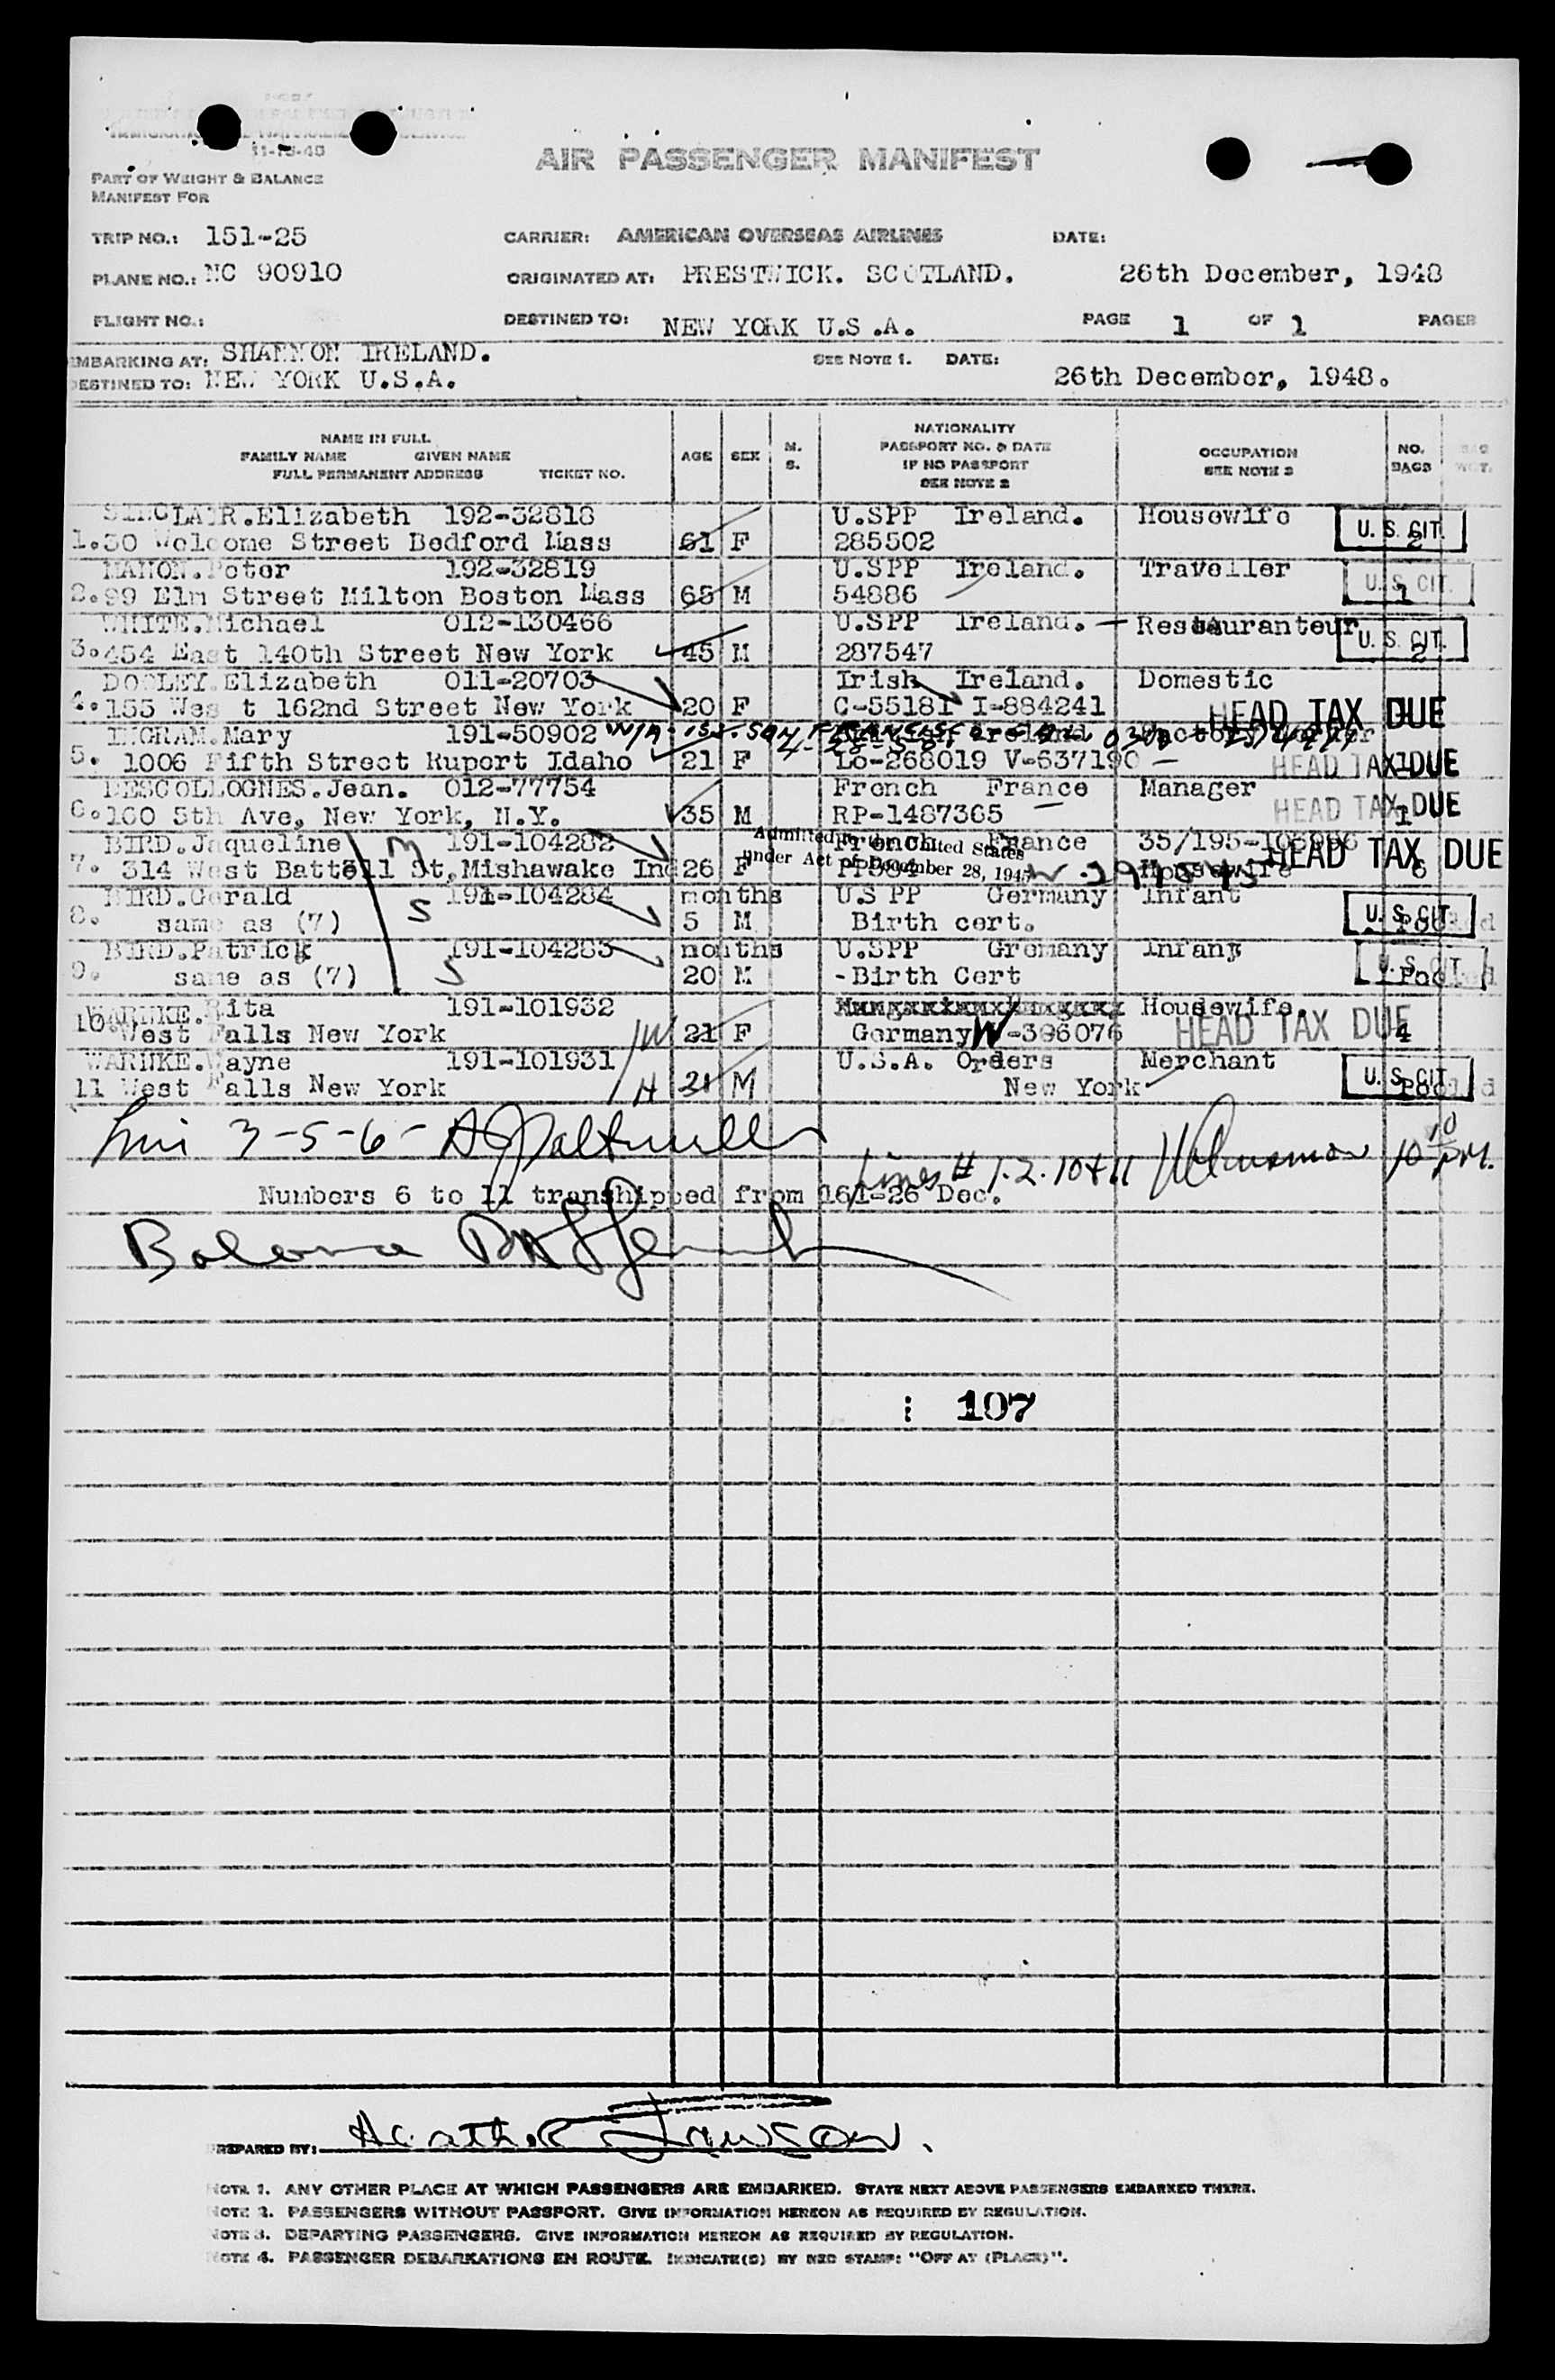 11-15-48
AIR PASSENGER MANIFEST
PART OF WEIGHT & BALANCE
MANIFEST FOR
TRIP NO.: 151-25 CARRIER: AMERICAN OVERSEAS AIRLINES DATE:
PLANE NO.: NC 90910 ORIGINATED AT: PRESTWICK. SCOTLAND. 26th December, 1948
FLIGHT NO.: DESTINED TO: NEW YORK U.S.A. PAGE 1 OF 1 PAGES
EMBARKING AT: SHANNON IRELAND. SEE NOTE 1. DATE:
DESTINED TO: NEW YORK U.S.A. 26th December, 1948.
NAME IN FULL
FAMILY NAME GIVEN NAME
FULL PERMANENT ADDRESS TICKET NO.
AGE SEX M. S.
NATIONALITY
PASSPORT NO. & DATE
IF NO PASSPORT
SEE NOTE 2
OCCUPATION
SEE NOTE 3
NO. BAGS
BAG WGT.
SINCLAIR.Elizabeth 192-32818 U.SPP Ireland. Housewife
1.30 Welcome Street Bedford Mass 61 F 285502 U. S. CIT. 2
MAHON.Peter 192-32819 U.SPP Ireland. Traveller
2.99 Elm Street Milton Boston Mass 65 M 54886 U. S. CIT. 1
WHITE.Michael 012-130466 U.SPP Ireland. Restauranteur
3.454 East 140th Street New York 45 M 287547 U. S. CIT. 2
DOOLEY.Elizabeth 011-20703 Irish Ireland. Domestic
4.155 Wes t 162nd Street New York 20 F C-55181 I-884241 HEAD TAX DUE
INGRAM.Mary 191-50902 Ireland Factory Worker
5. 1006 Fifth Street Rupert Idaho 21 F Lo-268019 V-637190 HEAD TAX DUE 1
DESCOLLOGNES.Jean. 012-77754 French France Manager
6.160 5th Ave, New York, N.Y. 35 M RP-1487365 HEAD TAX DUE 1
BIRD.Jaqueline M 191-104282 French France
Admitted to the United States
under Act of December 28, 1945
7. 314 West Battell St,Mishawake Ind 26 F Housewife HEAD TAX DUE 6
BIRD.Gerald S 191-104284 months U.S PP Germany Infant
8. same as (7) 5 M Birth cert. U. S. CIT. Pooled
BIRD.Patrick S 191-104283 months U.SPP Gremany Infant
9. same as (7) 20 M -Birth Cert U. S. CIT. Pooled
WARNKE.Rita 191-101932 Housewife.
10.West Falls New York W 21 F Germany W-396076 HEAD TAX DUE 4
WARNKE.Wayne 191-101931 U.S.A. Orders Merchant
11 West Falls New York H 21 M New York U. S. CIT. Pooled
3-5-6-
Lines # 1.2.10+11 10 10 P.M.
Numbers 6 to 11 transhipped from 161-26 Dec.
107
PREPARED BY: Heather Lawson.
NOTE 1. ANY OTHER PLACE AT WHICH PASSENGERS ARE EMBARKED. STATE NEXT ABOVE PASSENGERS EMBARKED THERE.
NOTE 2. PASSENGERS WITHOUT PASSPORT. GIVE INFORMATION HEREON AS REQUIRED BY REGULATION.
NOTE 3. DEPARTING PASSENGERS. GIVE INFORMATION HEREON AS REQUIRED BY REGULATION.
NOTE 4. PASSENGER DEBARKATIONS EN ROUTE. INDICATE(D) BY RED STAMP: "OFF AT (PLACE)".